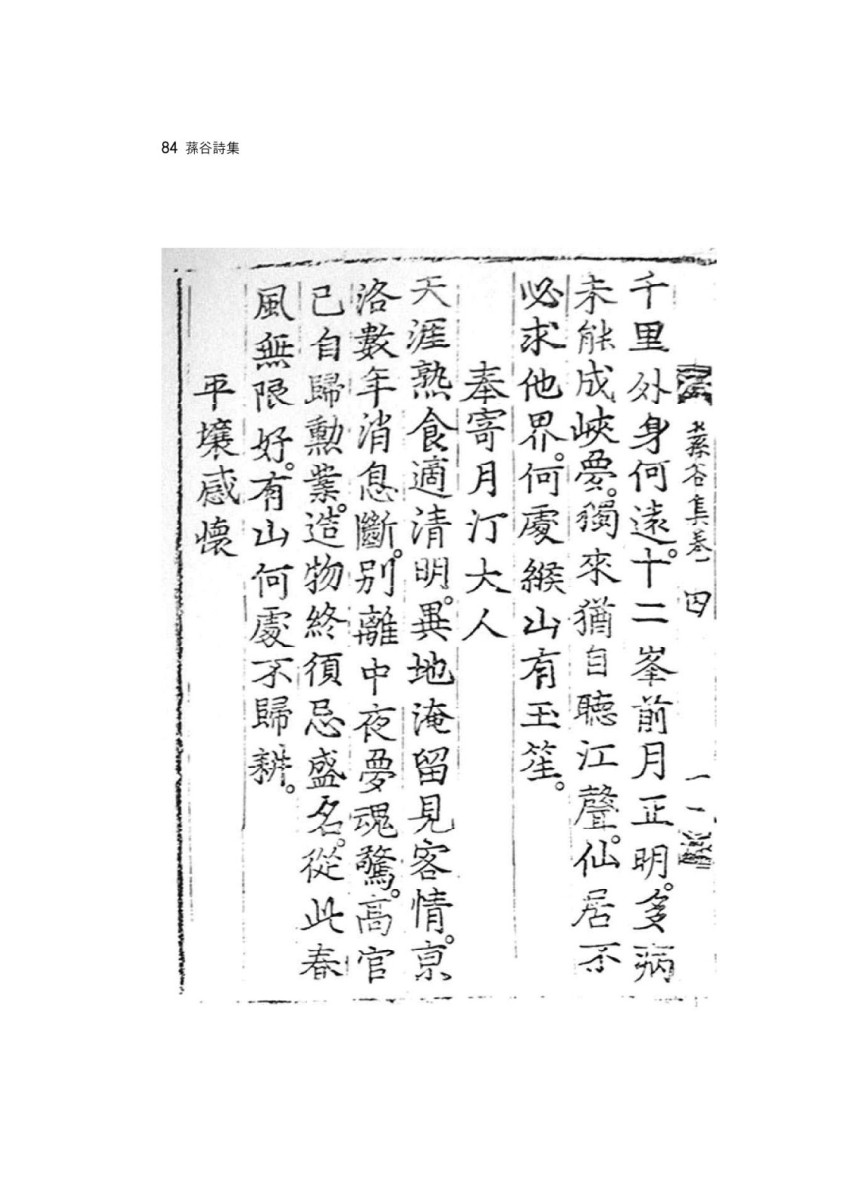 84 蓀谷詩集
蓀谷集卷一 四
千里外身何遠。十二峯前月正明。多病
未能成峽夢。獨來猶自聽江聲。仙居不
必求他界。何處緱山有玉笙。
奉寄月汀大人
天涯熟食適清明。異地淹留見客情。京
洛數年消息斷。別離中夜夢魂驚。高官
已自歸勳業。造物終須忌盛名。從此春
風無限好。有山何處不歸耕。
平壤感懷